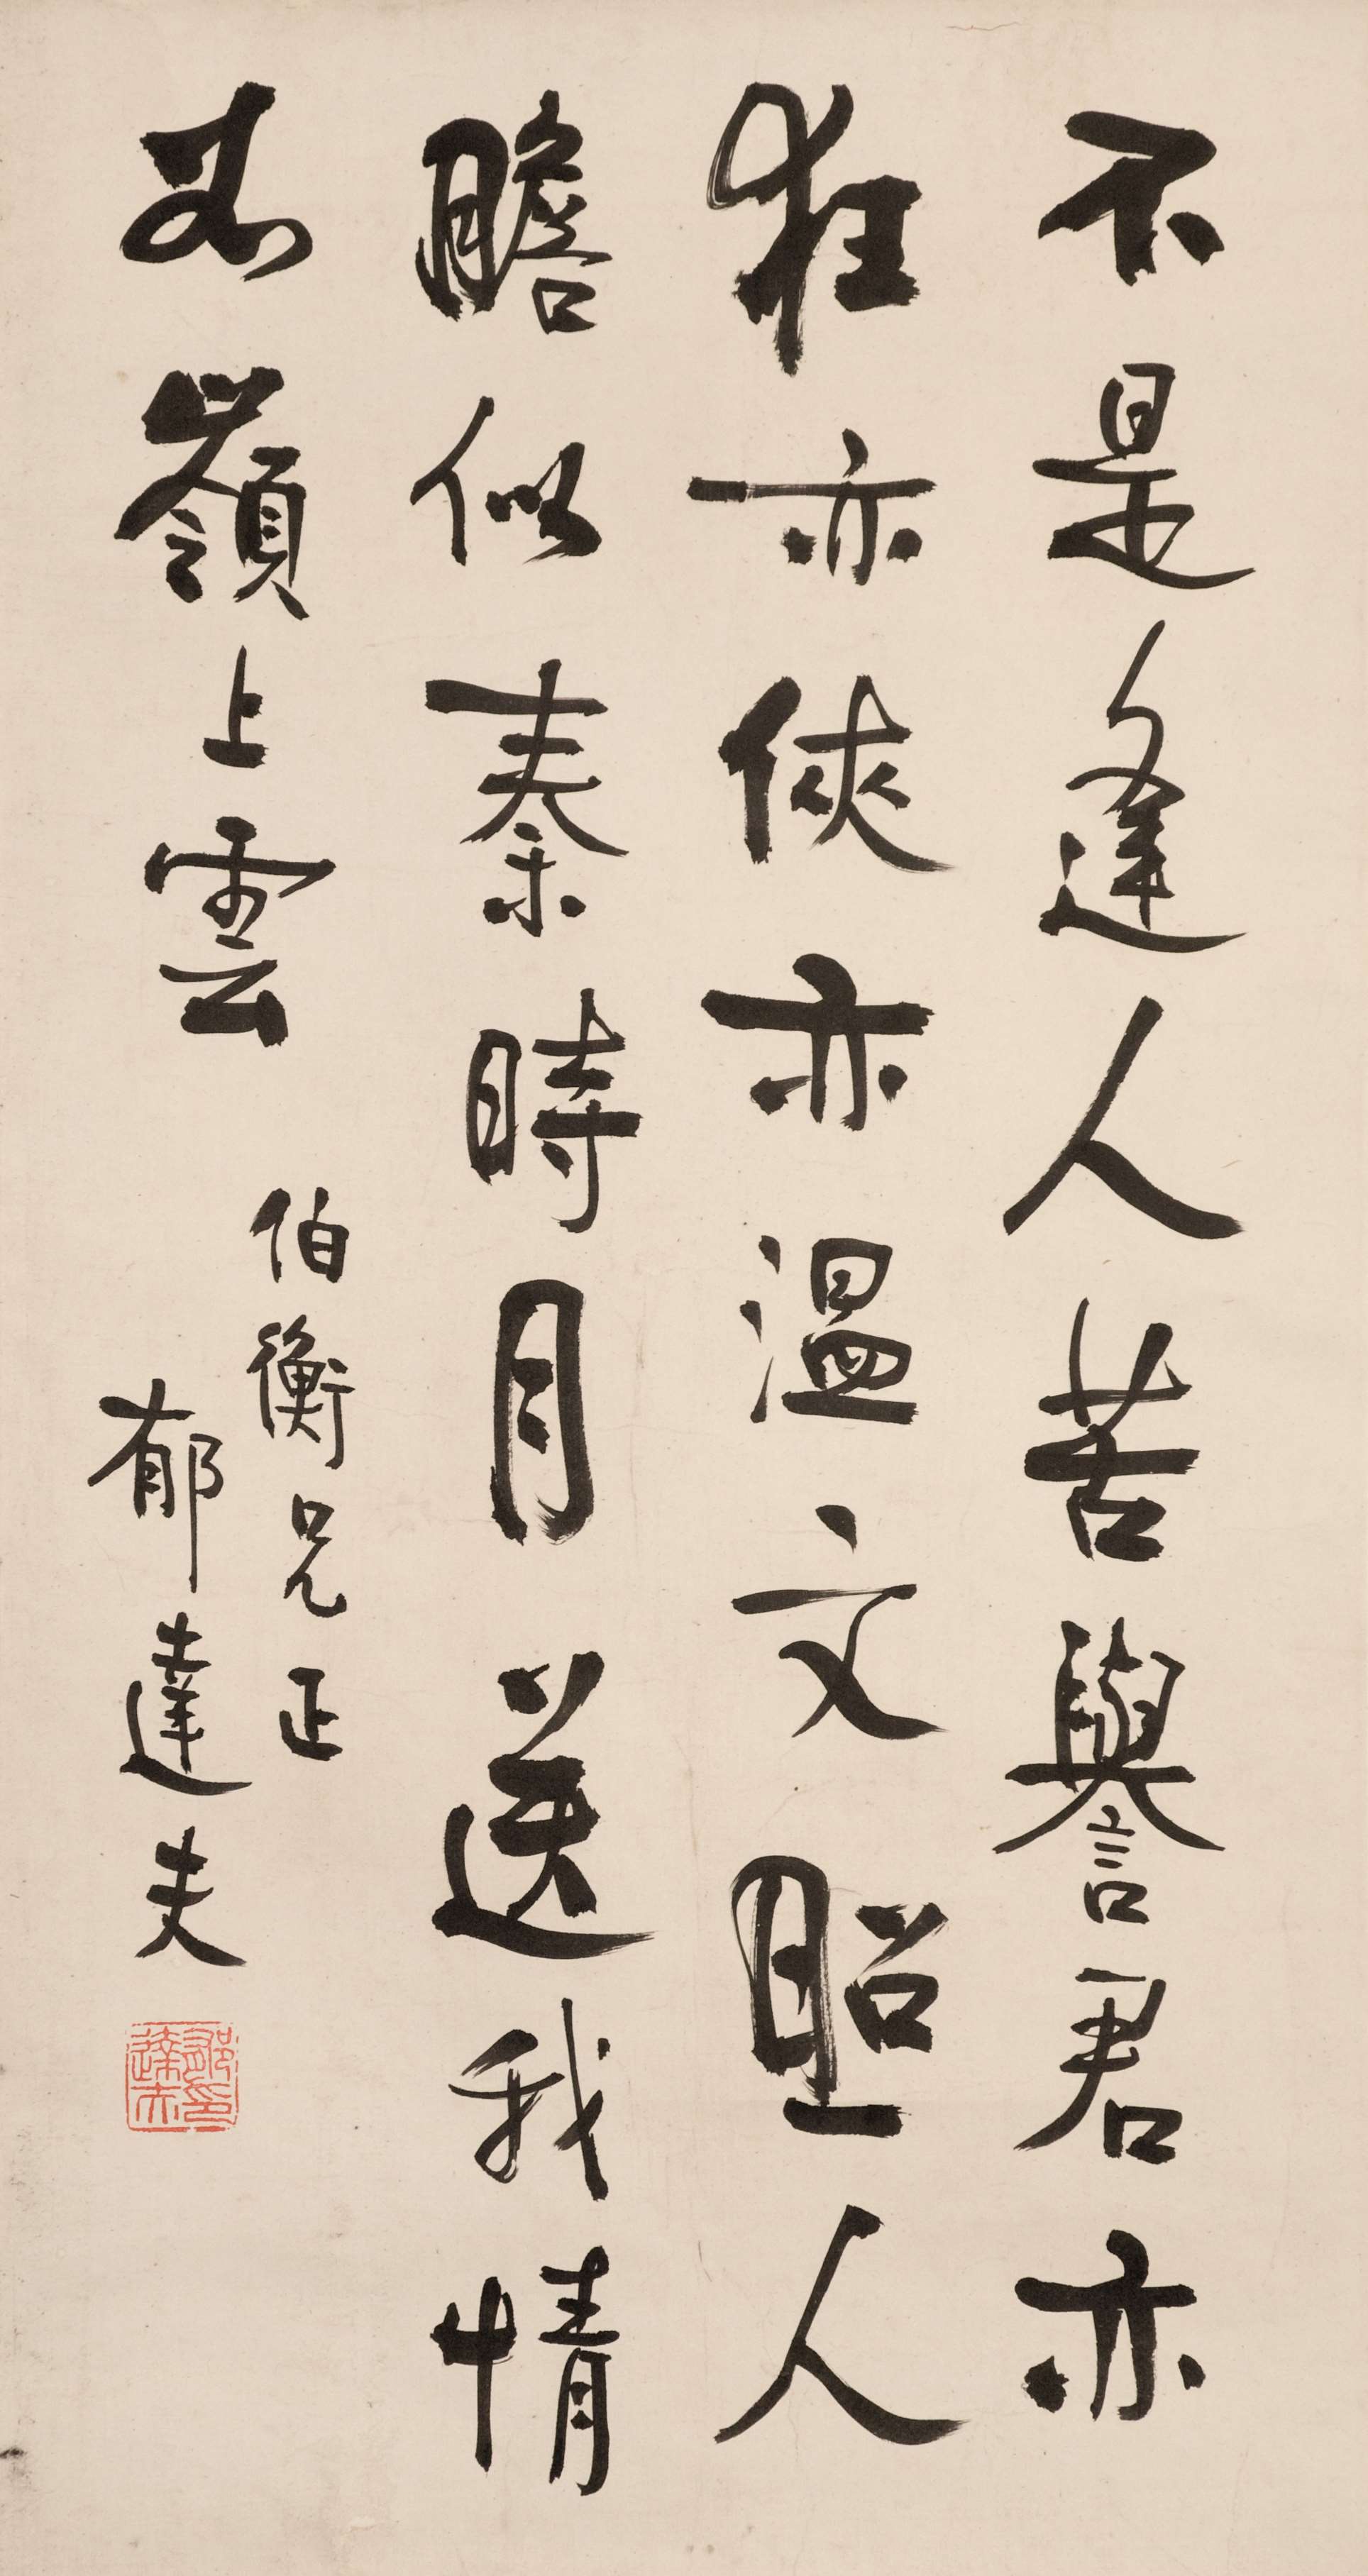 不是逢人苦譽君亦
狂亦俠亦温文照人
膽似秦時月送我情
如嶺上雲
伯衡兄正
郁達夫
郁達夫印